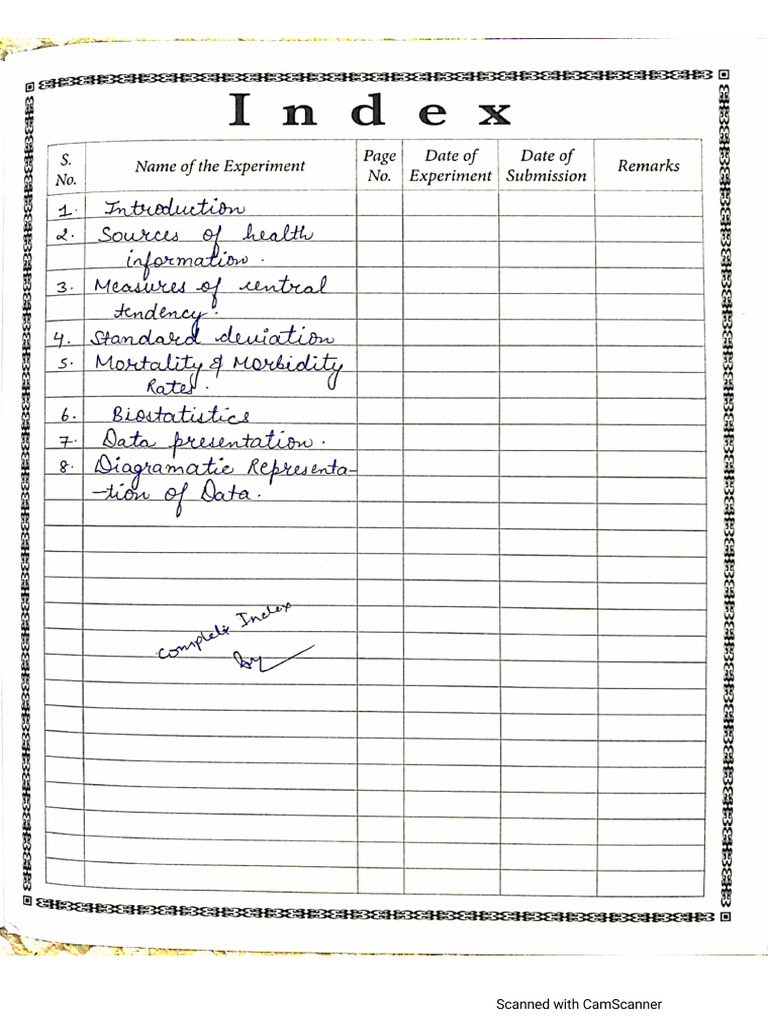 Index
S. No. Name of the Experiment Page No. Date of Experiment Date of Submission Remarks
1. Introduction
2. Sources of health
information.
3. Measures of central
tendency.
4. Standard deviation
5. Mortality & Morbidity
Rates.
6. Biostatistics
7. Data presentation.
8. Diagramatic Representa-
-tion of Data.
Complete Index
Scanned with CamScanner